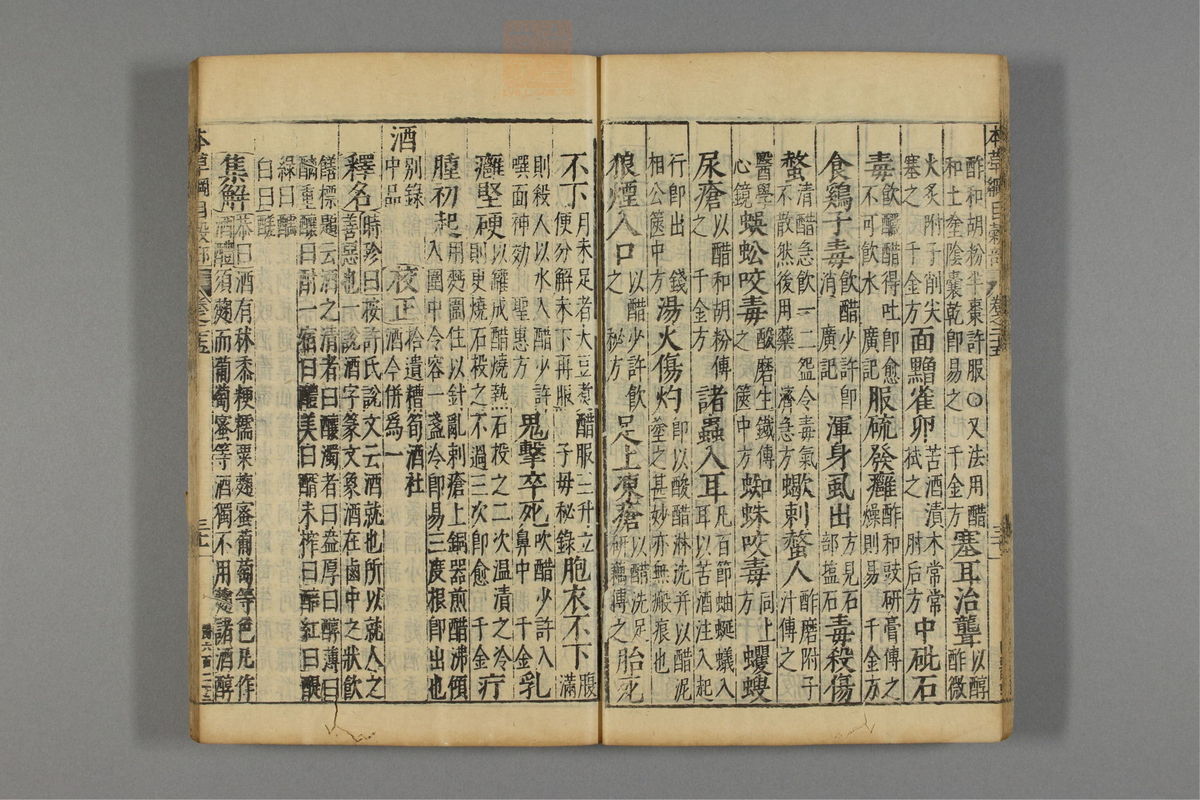 本草綱目穀部　卷之二十五
醋和胡粉半棗許服○又法用醋
和土塗陰囊乾即易之　千金方
塞耳治聾
以醇
酢微
火炙附子削尖
塞之　千金方
面䵟雀卵
苦酒漬朮常常
拭之　肘后方
中砒石
毒
飲釅醋得吐即愈
不可飲水　廣記
服硫發癰
酢和豉研膏傅之
燥則易　千金方
食鷄子毒
飲醋少許即
消　廣記
渾身虱出
方見石
部塩石
毒殺傷
螫
清醋急飲一二盌令毒氣
不散然後用藥　濟急方
蠍刺螫人
酢磨附子
汁傅之
醫學
心鏡
蜈蚣咬毒
醋磨生鐵傅
之　篋中方
蜘蛛咬毒
同上
方
蠼螋
尿瘡
以醋和胡粉傅
之　千金方
諸蟲入耳
凡百節蚰蜒蟻入
耳以苦酒注入起
行即出　錢
相公篋中方
湯火傷灼
即以酸醋淋洗并以醋泥
塗之甚妙亦無瘢痕也
狼煙入口
以醋少許飲
之　秘方
足上凍瘡
以醋洗足
研藕傅之
胎死
不下
月未足者大豆煮醋服三升立
便分解未下再服　子母秘錄
胞衣不下
腹
滿
則殺人以水入醋少許
噀面神効　聖惠方
鬼擊卒死
吹醋少許入
鼻中　千金
乳
癰堅硬
以罐盛醋燒熱石投之二次温漬之冷
則更燒石投之不過三次即愈　千金
疔
腫初起
用麪圍住以針亂刺瘡上銅器煎醋沸傾
入圍中令容一盞冷即易三度根即出也
酒
別錄
中品
校正
拾遺糟筍酒社
酒今併爲一
釋名
時珍曰按許氏說文云酒就也所以就人之
善惡也一說酒字篆文象酒在卣中之狀飲
膳標題云酒之清者曰釀濁者曰盎厚曰醇薄曰
醨重釀曰酎一宿曰醴美曰醑未榨曰醅紅曰醍
綠曰醽
白曰醝
集解
恭曰酒有秫黍粳糯粟麴蜜葡萄等色凡作
酒醴須麴而葡萄蜜等酒獨不用麴諸酒醇
本草綱目穀部　卷之二十五